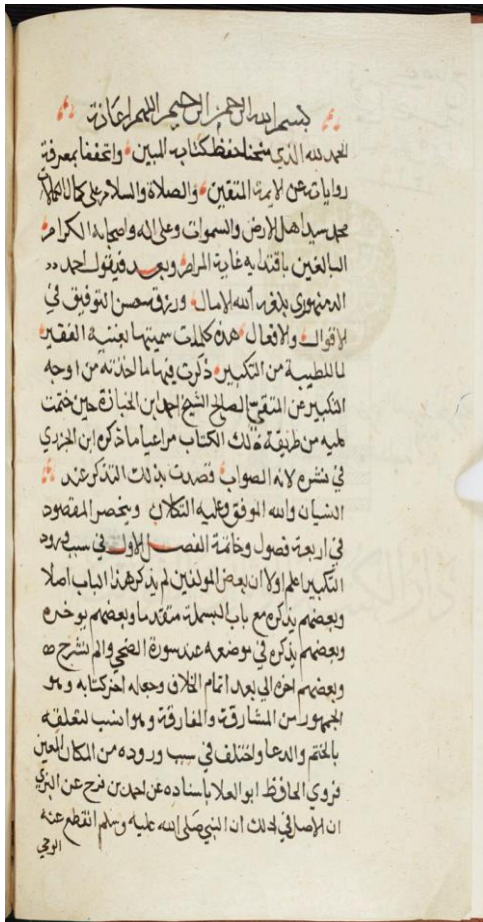 بسم الله الرحمن الرحيم اللهم اعانة
الحمد لله الذي منحنا حفظ كتابه المبين واتحفنا بمعرفة
روايات عن الايمة المتقين والصلاة والسلام على كمال الكمالات
محمد سيد اهل الارض والسموات وعلى اله واصحابه الكرام
البالغين باقتدايه غاية المرام وبعد فيقول احمد
الدمنهوري بلغه الله الامال ورزقه حسن التوفيق في
الاقوال والافعال هذه كلمات سميتها بغنية الفقير
لما للطيبة من التكبير ذكرت فيها ما اخذته من اوجه
التكبير عن المتقي الصالح الشيخ احمد ابن الخبازة حين ختمت
عليه من طريقة ذلك الكتاب مراعيا ما ذكره ابن الجزري
في نشره لانه الصواب قصدت بذلك التذكر عند
النسيان والله الموفق وعليه التكلان وينحصر المقصود
في اربعة فصول وخاتمة الفصل الاول في سبب ورود
التكبير اعلم اولا ان بعض المولفين لم يذكر هذا الباب اصلا
وبعضهم يذكره مع باب البسملة متقدما وبعضهم يوخره
وبعضهم يذكره في موضعه عند سورة الضحى والم نشرح
وبعضهم اخره الي بعد اتمام الخلاف وجعله اخر كتابه وهو
الجمهور من المشارقة والمغاربة وهو انسب لتعلقه
بالختم والدعا واختلف في سبب وروده من المكان المعين
فروي الحافظ ابو العلا باسناده عن احمد بن فرح عن البزي
ان الاصل في ذلك ان النبي صلى الله عليه وسلم انقطع عنه
الوحي